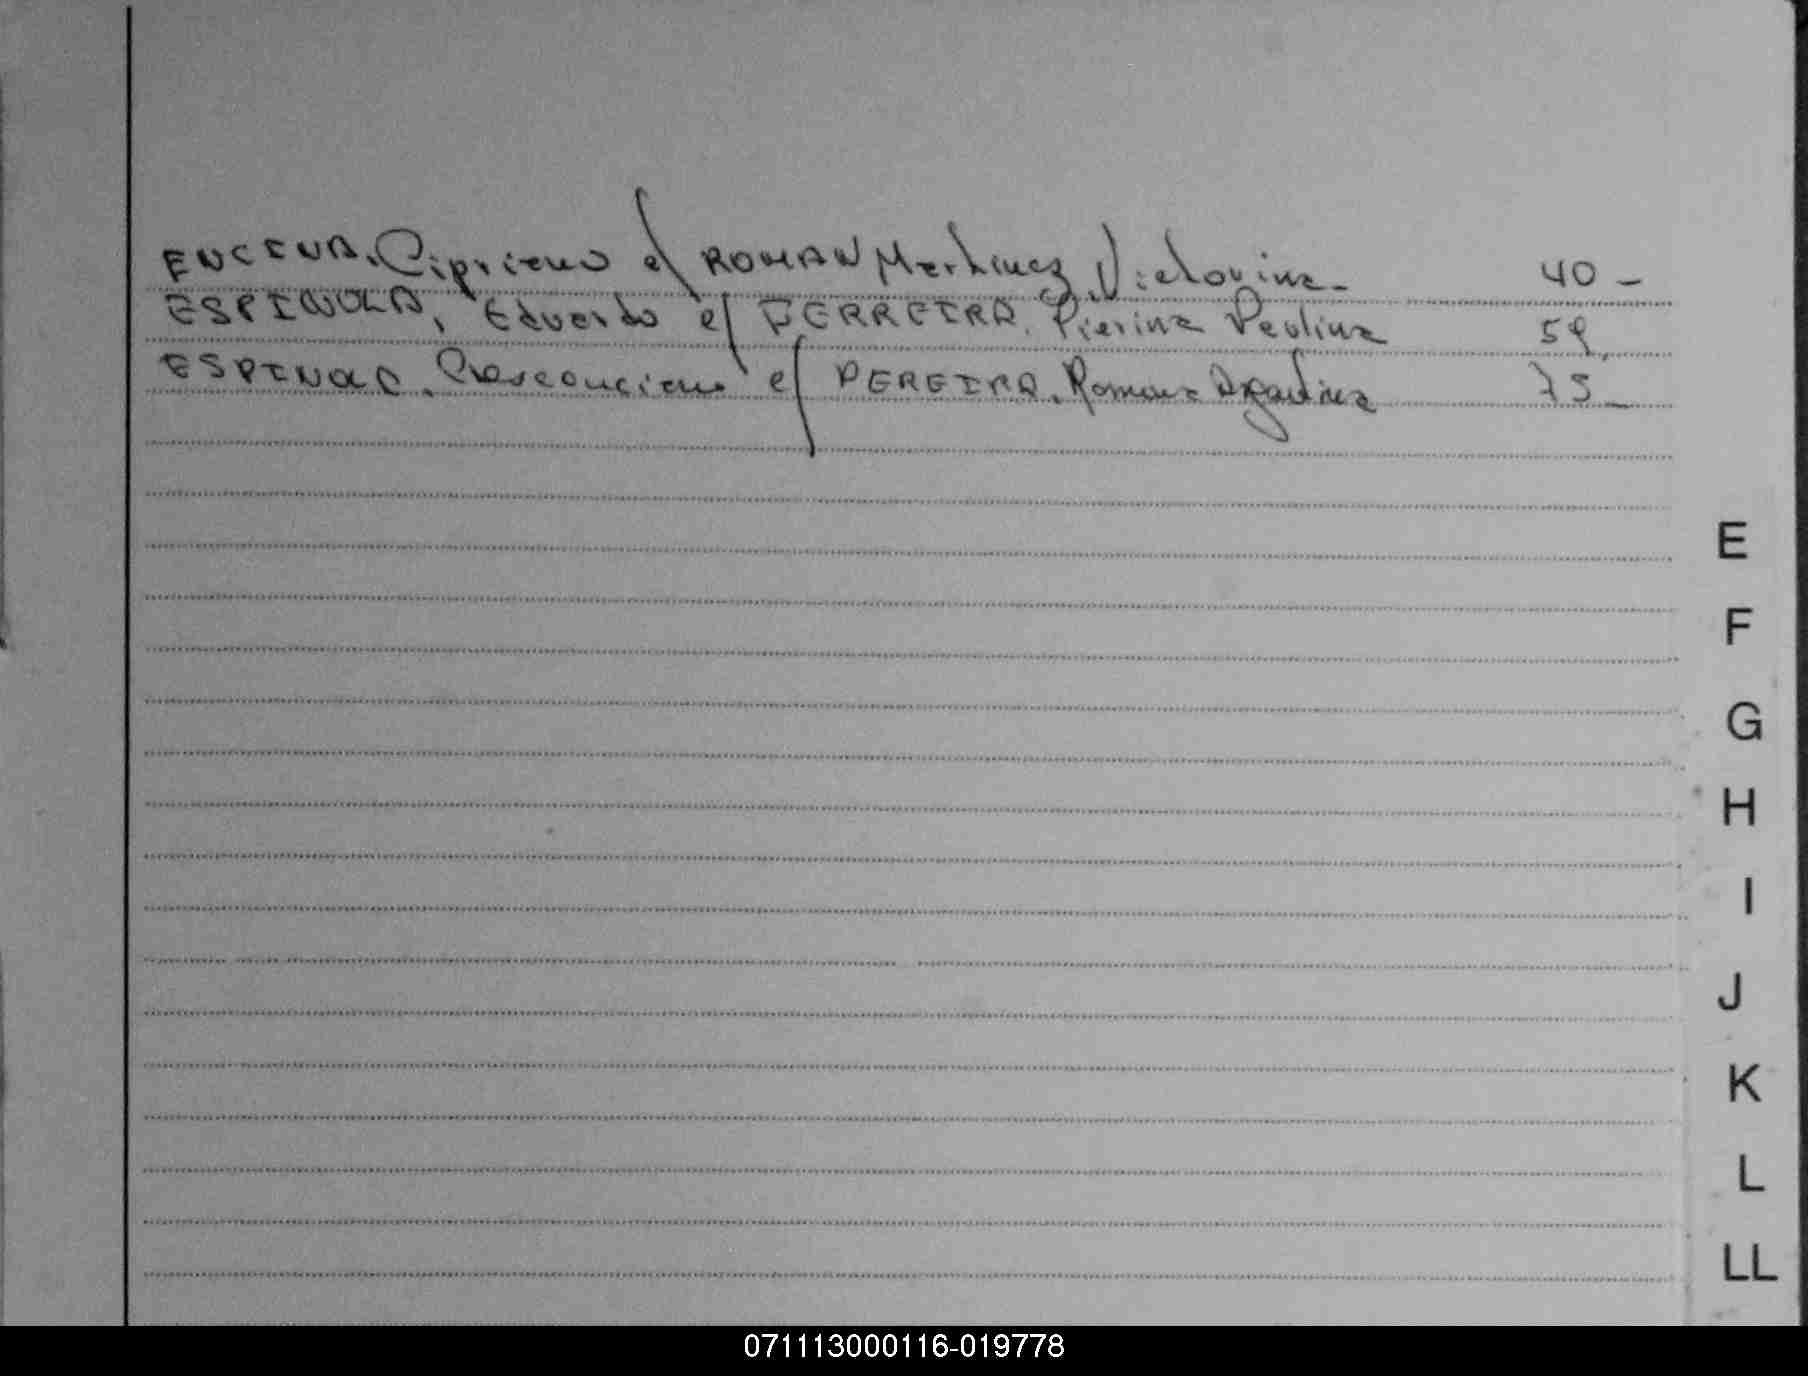 ENCINA, Cipriano c/ ROMAN Martinez, Victorina - 40 -
ESPINOLA, Eduardo c/ FERREIRA, Pierina Paolina 59
ESPINOLA, c/ PEREIRA, Romana Agautina 75 -
E
F
G
H
I
J
K
L
LL
071113000116-019778